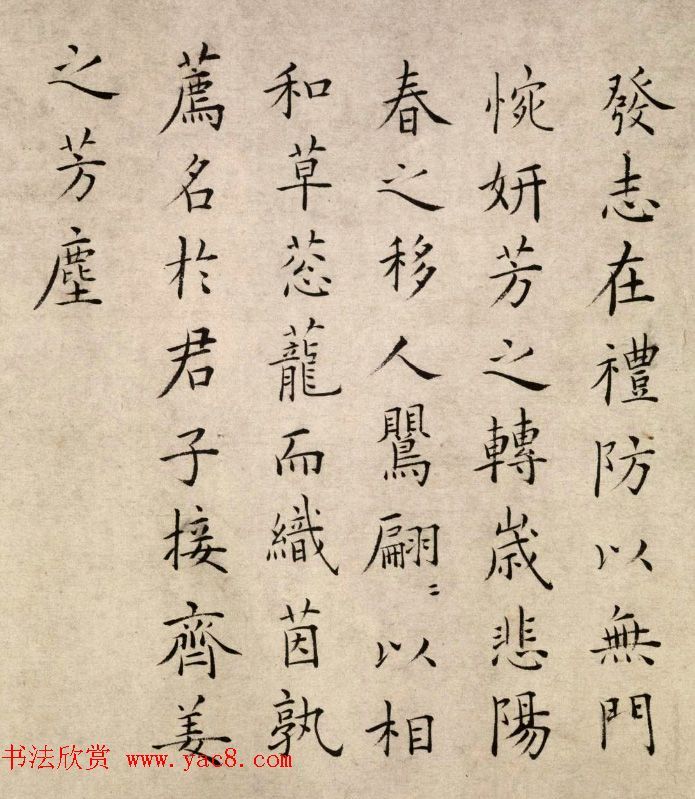 發志在禮防以無門
惋妍芳之轉歲悲陽
春之移人鸎翩〻以相
和草蒸蘢而織茵孰
薦名於君子接齊姜
之芳塵
书法欣赏 www.yac8.com